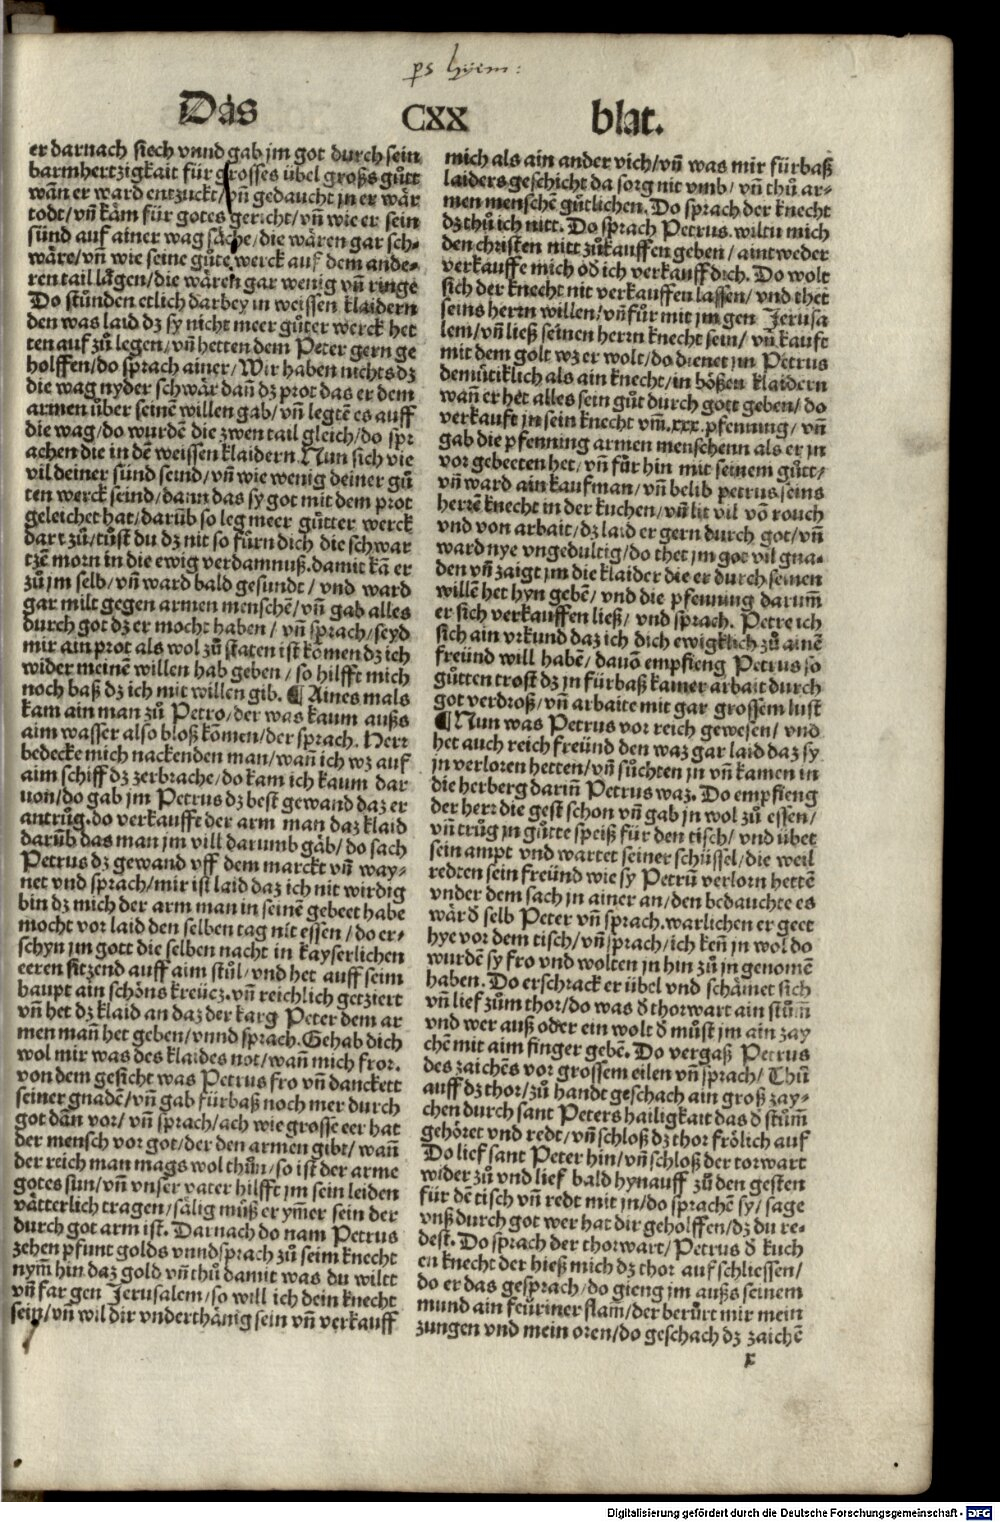 ps hyem:
Das CXX blat.
er darnach siech vnnd gab jm got durch sein
barmhertzigkait für grosses übel großs gůtt
wañ er ward entzuckt/vñ gedaucht jn er wär
todt/vñ käm für gotes gericht/vñ wie er sein
sünd auf ainer wag säche/die wären gar sch-
wäre/vñ wie seine gůte werck auf dem ande-
ren tail lägen/die wären gar wenig vñ ringe
Do stůnden etlich darbey in weissen klaidern
den was laid dz sy nicht meer gůter werck het
ten auf zů legen/vñ hetten dem Peter gern ge
holffen/do sprach ainer/Wir haben nichts dz
die wag nyder schwär dañ dz prot das er dem
armen über seinē willen gab/vñ legtē es auff
die wag/do wurdē die zwen tail gleich/do spr
achen die in dē weissen klaidern Nun sich vie
vil deiner sünd seind/vñ wie wenig deiner gů
ten werck seind/dann das sy got mit dem prot
geleichet hat/darūb so leg meer gůtter werck
dar zů/tůst du dz nit so fürn dich die schwar
tzē morn in die ewig verdamnuß.damit kā er
zů jm selb/vñ ward bald gesundt/vnd ward
gar milt gegen armen menschē/vñ gab alles
durch got dz er mocht haben/vñ sprach/seyd
mir ain prot als wol zů staten ist komen dz ich
wider meinē willen hab geben/so hilfft mich
noch baß dz ich mit willen gib. ¶ Aines mals
kam ain man zů Petro/der was kaum außs
aim wasser also bloß komen/der sprach. Herr
bedecke mich nackenden man/wañ ich wz auf
aim schiff dz zerbrache/do kam ich kaum dar
uon/do gab jm Petrus dz best gewand daz er
antrůg.do verkaufft der arm man daz klaid
darūb das man jm vill darumb gäb/do sach
Petrus dz gewand vff dem marckt vñ way-
net vnd sprach/mir ist laid daz ich nit wirdig
bin dz mich der arm man in seinē gebeet habe
mocht vor laid den selben tag nit essen/do er-
schyn jm gott die selben nacht in kayserlichen
eeren sitzend auff aim stůl/vnd het auff seim
haupt ain schöns kreücz.vñ reichlich getziert
vñ het dz klaid an daz der karg Peter dem ar
men mañ het geben/vnnd sprach.Gehab dich
wol mir was des klaides not/wañ mich fror.
von dem gesicht was Petrus fro vñ danckett
seiner gnadē/vñ gab fürbaß noch mer durch
got dan vor/vñ sprach/ach wie grosse eer hat
der mensch vor got/der den armen gibt/wañ
der reich man mags wol thůn/so ist der arme
gotes sun/vñ vnser vater hilfft jm sein leiden
vätterlich tragen/sälig můß er ymer sein der
durch got arm ist. Darnach do nam Petrus
zehen pfunt golds vnndsprach zů seim knecht
nym̄ hin daz gold vñ thů damit was du wiltt
vñ far gen Jerusalem/so will ich dein knecht
sein/vñ wil dir vnderthänig sein vñ verkauff
mich als ain ander vich/vñ was mir fürbaß
laiders geschicht da sorg nit vmb/vñ thů ar-
men menschē gůtlichen. Do sprach der knecht
dz thů ich nitt. Do sprach Petrus.wiltu mich
den christen nitt zůkauffen geben/aintweder
verkauffe mich oð ich verkauff dich. Do wolt
sich der knecht nit verkauffen lassen/vnd thet
seins herrn willen/vñ für mit jm gen Jerusa
lem/vñ ließ seinen herrn knecht sein/vñ kauft
mit dem golt wz er wolt/do dienet jm Petrus
demůtiklich als ain knecht/in bößen klaidern
wañ er het alles sein gůt durch gott geben/do
verkauft jn sein knecht vm̄.xxx.pfenning/vñ
gab die pfenning armen menschenn als er jn
vor gebeeten het/vñ fůr hin mit seinem gůtt/
vñ ward ain kaufman/vñ belib petrus seins
herrē knecht in der kuchen/vñ lit vil vō rouch
vnd von arbait/dz laid er gern durch got/vñ
ward nye vngedultig/do thet jm got vil gna-
den vñ zaigt jm die klaider die er durch seinen
willē het hyn gebē/vnd die pfenning darum̄
er sich verkauffen ließ/vnd sprach. Petre ich
sich ain vrkund daz ich dich ewigklich zů ainē
freünd will habē/dauō empfieng Petrus so
gůtten trost dz jn fürbaß kainer arbait durch
got verdroß/vñ arbaite mit gar grossem lust
¶ Nun was Petrus vor reich gewesen/vnd
het auch reich freünd den waz gar laid daz sy
jn verloren hetten/vñ sůchten jn vñ kamen in
die herberg dariñ Petrus waz. Do empfieng
der herr die gest schon vñ gab jn wol zů essen/
vñ trůg jn gůtte speiß für den tisch/vnd übet
sein ampt vnd wartet seiner schüssel/die weil
redten sein freünd wie sy Petrū verlorn hettē
vnder dem sach jn ainer an/den bedauchte es
wär ð selb Peter vñ sprach.warlichen er geet
hye vor dem tisch/vñ sprach/ich keñ jn wol do
wurdē sy fro vnd wolten jn hin zů jn genomē
haben. Do erschrack er übel vnd schämet sich
vñ lief zům thor/do was ð thorwart ain stům̄
vnd wer auß oder ein wolt ð můst jm ain zay
chē mit aim finger gebē. Do vergaß Petrus
des zaichēs vor grossem eilen vñ sprach/Thů
auff dz thor/zů handt geschach ain groß zay-
chen durch sant Peters hailigkait das ð stům̄
gehöret vnd redt/vñ schloß dz thor frölich auf
Do lief sant Peter hin/vñ schloß der torwart
wider zů vnd lief bald hynauff zů den gesten
für dē tisch vñ redt mit jn/do sprachē sy/sage
vnß durch got wer hat dir geholffen/dz du re-
dest. Do sprach der thorwart/Petrus ð kuch
en knecht der hieß mich dz thor auf schliessen/
do er das gesprach/do gieng jm außs seinem
mund ain feüriner flam̄/der berůrt mir mein
zungen vnd mein oren/do geschach dz zaichē
r
Digitalisierung gefördert durch die Deutsche Forschungsgemeinschaft - DFG